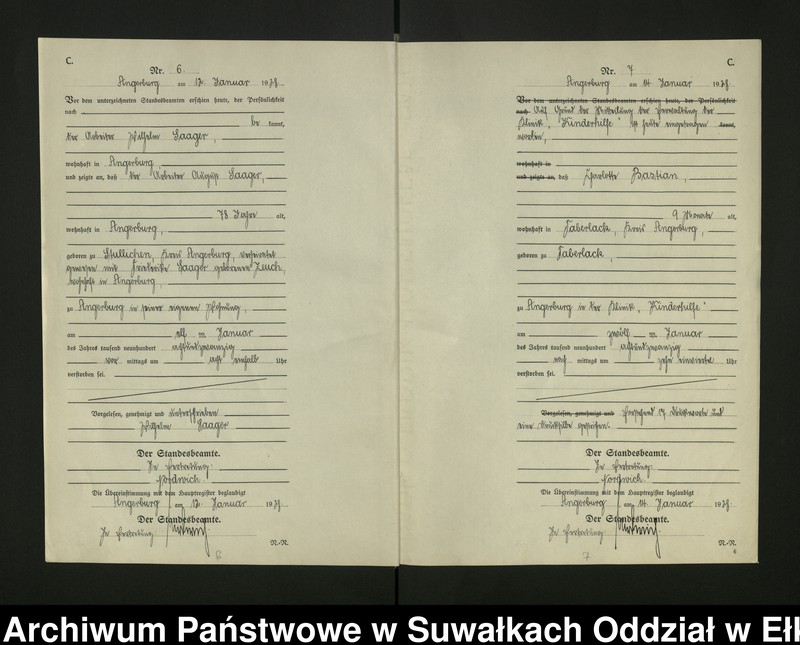 C.
Nr. 6.
Angerburg am 12. Januar 1928.
Vor dem unterzeichneten Standesbeamten erschien heute, der Persönlichkeit
nach
be kannt,
der Arbeiter Wilhelm Saager,
wohnhaft in Angerburg,
und zeigte an, daß der Arbeiter August Saager,
78 Jahre alt,
wohnhaft in Angerburg,
geboren zu Stullichen, Kreis Angerburg, verheiratet
gewesen mit Friederike Saager geborenen Zeuch,
wohnhaft in Angerburg,
zu Angerburg in seiner eigenen Wohnung,
am elf ten Januar
des Jahres tausend neunhundert achtundzwanzig
vor mittags um acht einhalb Uhr
verstorben sei.
Vorgelesen, genehmigt und unterschrieben
Wilhelm Saager
Der Standesbeamte.
In Vertretung:
Nordwich.
Die Übereinstimmung mit dem Hauptregister beglaubigt
Angerburg am 12. Januar 1928.
Der Standesbeamte.
In Vertretung:
N.-N.
6
C.
Nr. 7
Angerburg am 14. Januar 1928.
Vor dem unterzeichneten Standesbeamten erschien heute, der Persönlichkeit
nach Auf Grund der Mitteilung der Verwaltung der
Klinik "Kinderhilfe" ist heute eingetragen kannt,
worden,
wohnhaft in
und zeigte an, daß Charlotte Bastian,
9 Monate alt,
wohnhaft in Taberlack, Kreis Angerburg,
geboren zu Taberlack,
zu Angerburg in der Klinik "Kinderhilfe"
am zwölf ten Januar
des Jahres tausend neunhundert achtundzwanzig
nach mittags um zehn einviertel Uhr
verstorben sei.
Vorgelesen, genehmigt und Vorstehend 17 Druckworte und
eine Drucksilbe gestrichen.
Der Standesbeamte.
In Vertretung:
Nordwich.
Die Übereinstimmung mit dem Hauptregister beglaubigt
Angerburg am 14. Januar 1928.
Der Standesbeamte.
In Vertretung:
N.-N.
6
7
Archiwum Państwowe w Suwałkach Oddział w Ełk